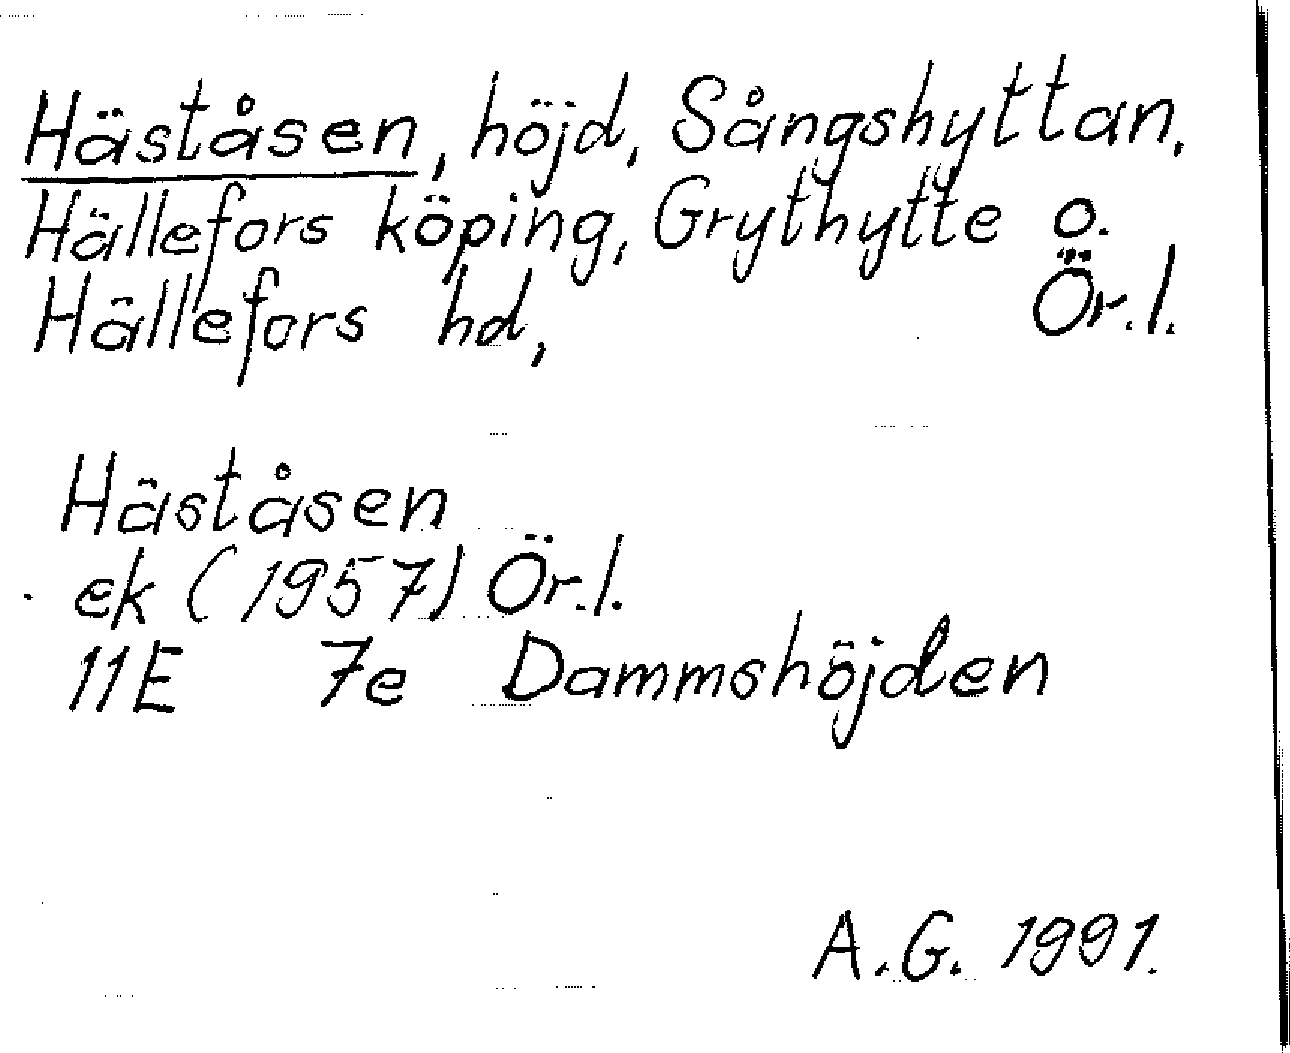 Häståsen, höjd, Sångshyttan,
Hällefors köping, Grythytte o.
Hällefors hd, Ör.l.
Häståsen
ek (1957) Ör.l.
11E 7e Dammshöjden
A.G. 1991.